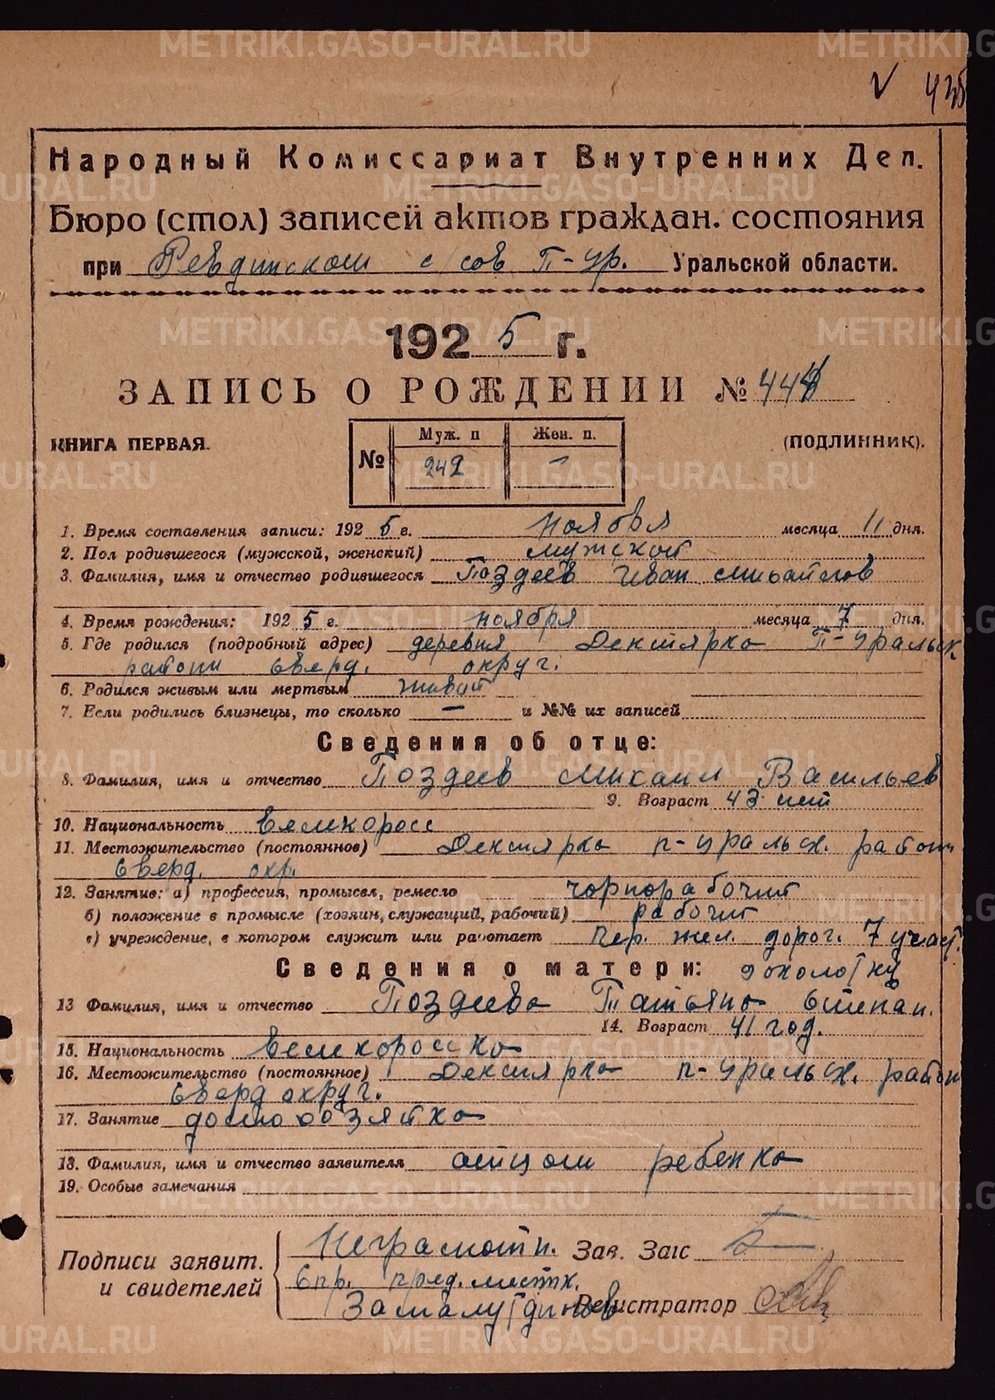 METRIKI.GASO-URAL.RU
Народный Комиссариат Внутренних Дел.
Бюро (стол) записей актов граждан. состояния
при Ревдинском с/сов П-Ур. Уральской области.
1925 г.
ЗАПИСЬ О РОЖДЕНИИ №
КНИГА ПЕРВАЯ.
(ПОДЛИННИК).
№ Муж. п Жен. п.
242 —
1. Время составления записи: 1925 г. ноября месяца 11 дня.
2. Пол родившегося (мужской, женский) мужской
3. Фамилия, имя и отчество родившегося Поздеев Иван Михайлов
4. Время рождения: 1925 г. ноября месяца 7 дня.
5. Где родился (подробный адрес) деревня Дектярка П-Уральск
района Сверд. округ.
6. Родился живым или мертвым живой
7. Если родились близнецы, то сколько — и №№ их записей
Сведения об отце:
8. Фамилия, имя и отчество Поздеев Михаил Васильев
9. Возраст 43 лет
10. Национальность великоросс
11. Местожительство (постоянное) Дектярка П-Уральск. район
Сверд. окр.
12. Занятие: а) профессия, промысел, ремесло чернорабочий
б) положение в промысле (хозяин, служащий, рабочий) рабочий
в) учреждение, в котором служит или работает Пер. жел. дорог. 7 участ.
Сведения о матери:
13 Фамилия, имя и отчество Поздеева Татьяна Степан.
14. Возраст 41 год.
15. Национальность великоросска
16. Местожительство (постоянное) Дектярка П-Уральск. район
Сверд округ.
17. Занятие домохозяйка
18. Фамилия, имя и отчество заявителя отцом ребенка
19. Особые замечания
Подписи заявит.
и свидетелей
Неграмотн.
Спр. пред. местк.
Зав. Загс
Регистратор